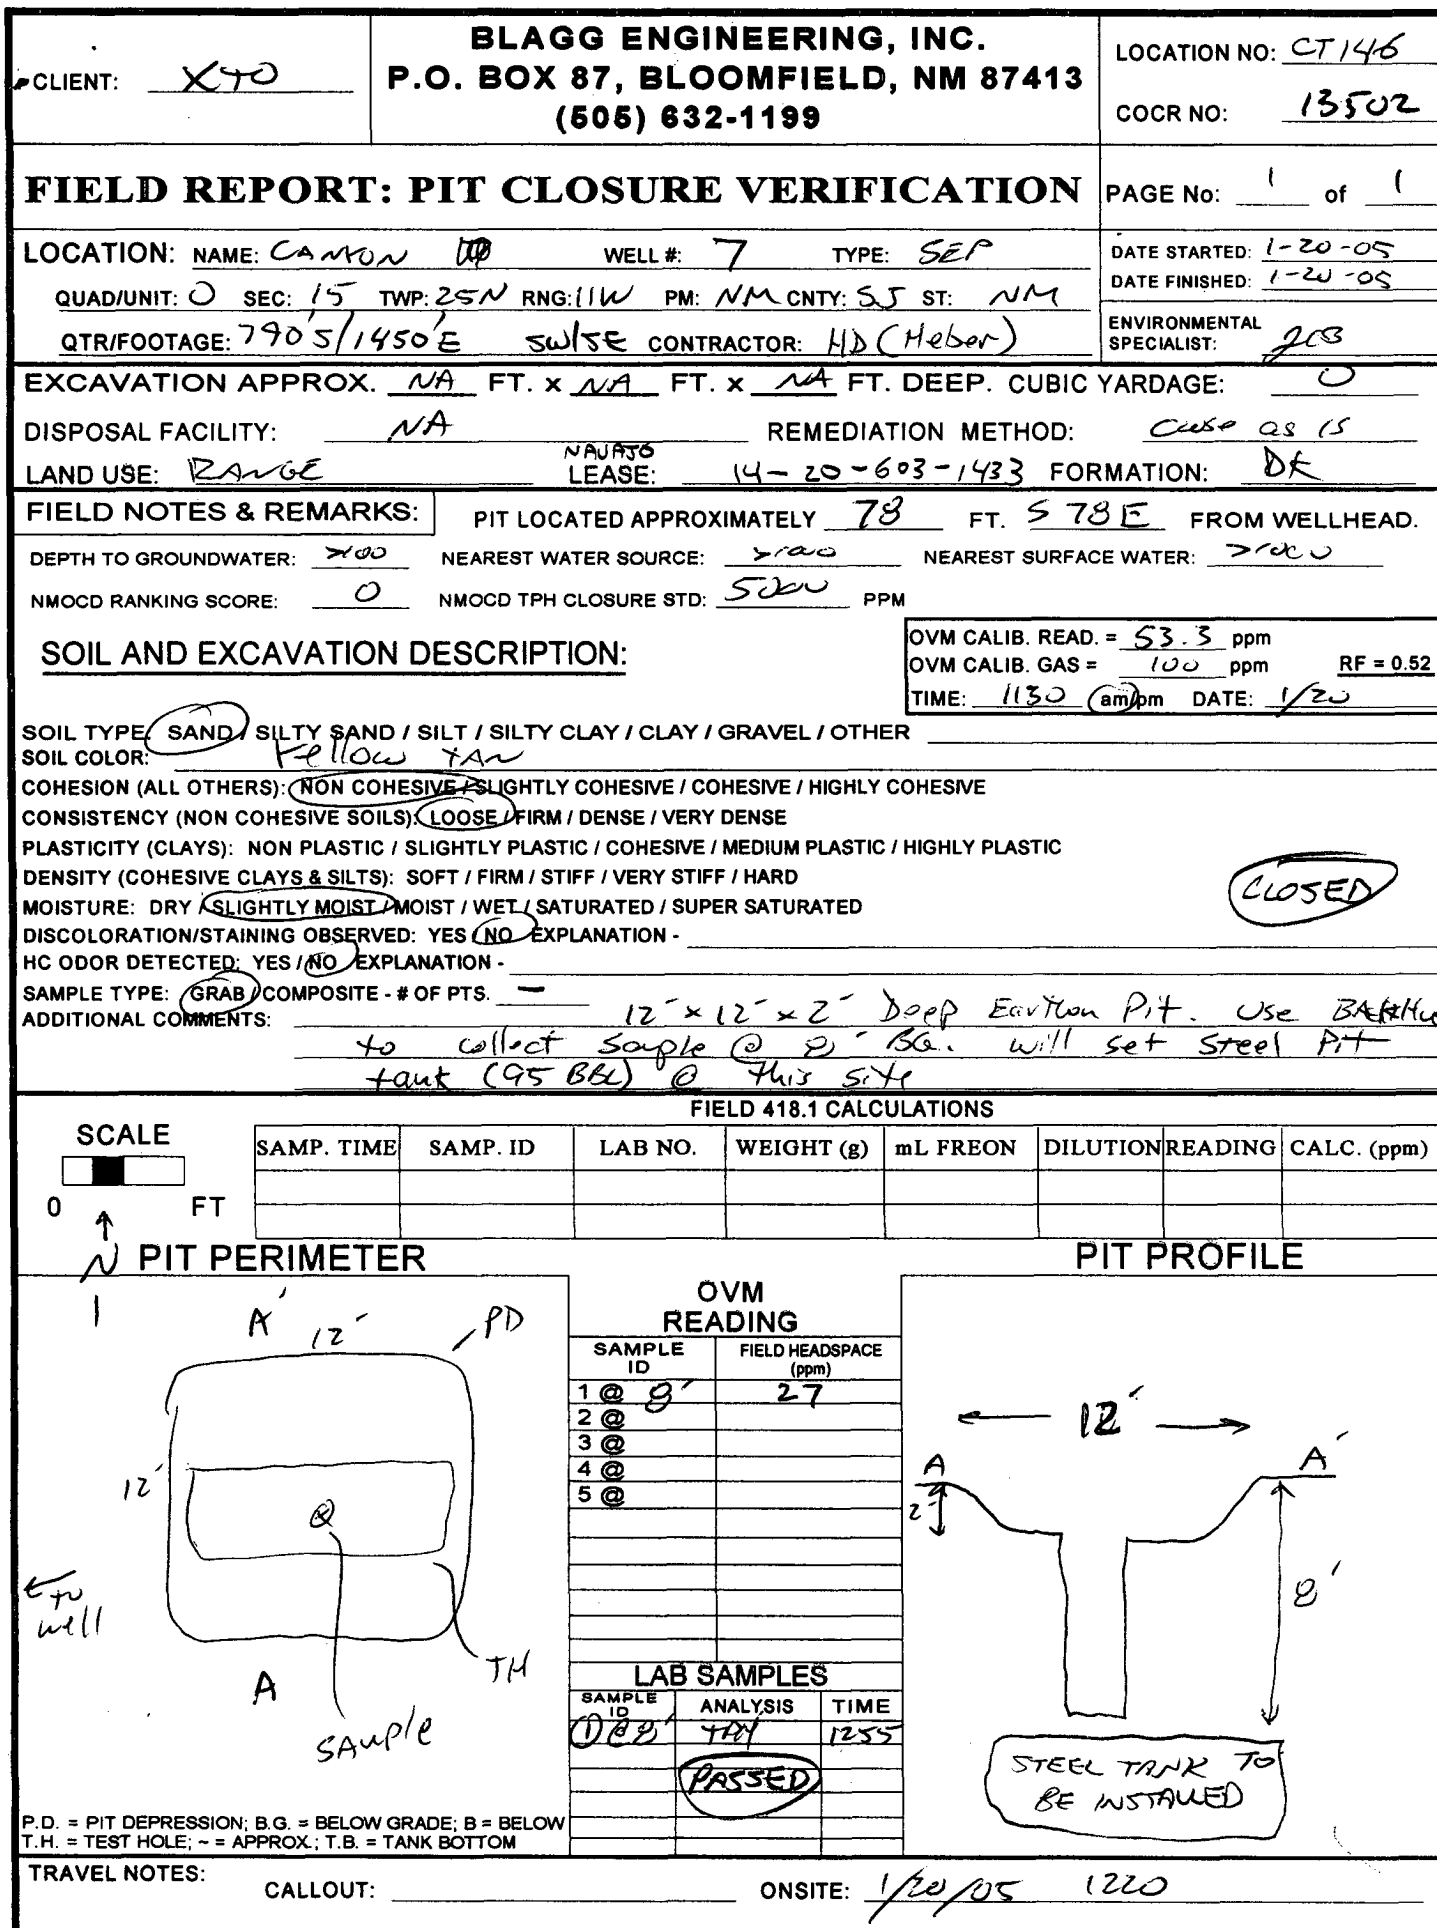 BLAGG ENGINEERING, INC.
P.O. BOX 87, BLOOMFIELD, NM 87413
(505) 632-1199
CLIENT: XTO
LOCATION NO: CT146
COCR NO: 13502
FIELD REPORT: PIT CLOSURE VERIFICATION
PAGE No: 1 of 1
LOCATION: NAME: CANYON WELL #: 7 TYPE: SEP
QUAD/UNIT: O SEC: 15 TWP: 25N RNG: 11W PM: NM CNTY: SJ ST: NM
QTR/FOOTAGE: 790'S/1450'E SW/SE CONTRACTOR: HD (Heber)
DATE STARTED: 1-20-05
DATE FINISHED: 1-20-05
ENVIRONMENTAL
SPECIALIST: JCB
EXCAVATION APPROX. NA FT. x NA FT. x NA FT. DEEP. CUBIC YARDAGE: 0
DISPOSAL FACILITY: NA REMEDIATION METHOD: Close as is
LAND USE: RANGE NAVAJO LEASE: 14-20-603-1433 FORMATION: DK
FIELD NOTES & REMARKS: PIT LOCATED APPROXIMATELY 78 FT. S78E FROM WELLHEAD.
DEPTH TO GROUNDWATER: >100 NEAREST WATER SOURCE: >1000 NEAREST SURFACE WATER: >1000
NMOCD RANKING SCORE: 0 NMOCD TPH CLOSURE STD: 5000 PPM
SOIL AND EXCAVATION DESCRIPTION:
OVM CALIB. READ. = 53.3 ppm
OVM CALIB. GAS = 100 ppm RF = 0.52
TIME: 1130 am/pm DATE: 1/20
SOIL TYPE: SAND / SILTY SAND / SILT / SILTY CLAY / CLAY / GRAVEL / OTHER
SOIL COLOR: Yellow TAN
COHESION (ALL OTHERS): NON COHESIVE / SLIGHTLY COHESIVE / COHESIVE / HIGHLY COHESIVE
CONSISTENCY (NON COHESIVE SOILS): LOOSE / FIRM / DENSE / VERY DENSE
PLASTICITY (CLAYS): NON PLASTIC / SLIGHTLY PLASTIC / COHESIVE / MEDIUM PLASTIC / HIGHLY PLASTIC
DENSITY (COHESIVE CLAYS & SILTS): SOFT / FIRM / STIFF / VERY STIFF / HARD
MOISTURE: DRY / SLIGHTLY MOIST / MOIST / WET / SATURATED / SUPER SATURATED
CLOSED
DISCOLORATION/STAINING OBSERVED: YES / NO EXPLANATION -
HC ODOR DETECTED: YES / NO EXPLANATION -
SAMPLE TYPE: GRAB / COMPOSITE - # OF PTS. —
ADDITIONAL COMMENTS: 12' x 12' x 2' Deep Earthen Pit. Use BACKHOE
to collect sample @ 8' BG. will set steel Pit
tank (95 BBL) @ this site
FIELD 418.1 CALCULATIONS
SCALE
0 FT
SAMP. TIME SAMP. ID LAB NO. WEIGHT (g) mL FREON DILUTION READING CALC. (ppm)
N PIT PERIMETER
PIT PROFILE
A' 12' PD
12'
to well
TH
A
SAMPLE
OVM
READING
SAMPLE ID FIELD HEADSPACE (ppm)
1 @ 8' 27
2 @
3 @
4 @
5 @
LAB SAMPLES
SAMPLE ID ANALYSIS TIME
① @ 8' TPH 1255
PASSED
12'
A A'
2'
8'
STEEL TANK TO
BE INSTALLED
P.D. = PIT DEPRESSION; B.G. = BELOW GRADE; B = BELOW
T.H. = TEST HOLE; ~ = APPROX.; T.B. = TANK BOTTOM
TRAVEL NOTES: CALLOUT: ONSITE: 1/20/05 1220